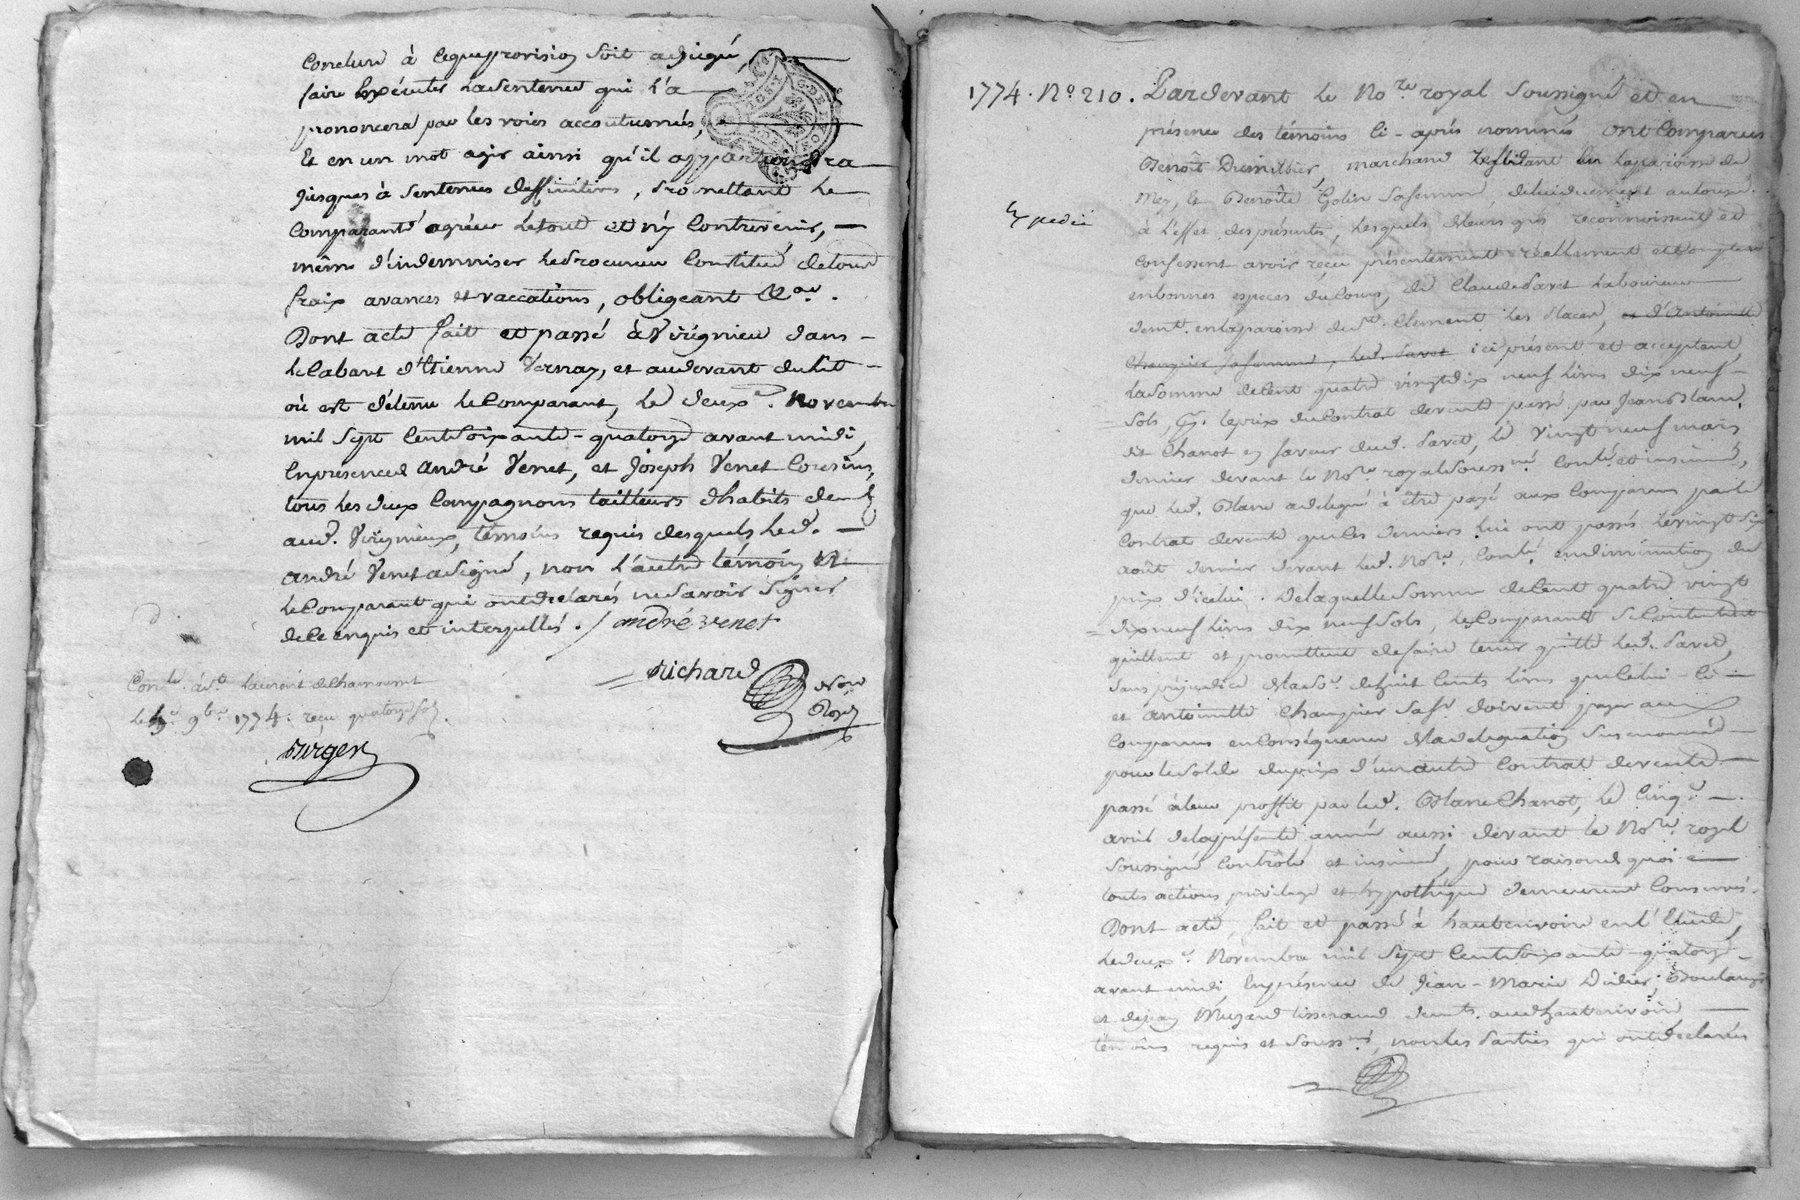 Conclure à ceque provision soit adjugé,
faire Exécuter la Sentence qui l'a
prononcera par les voies accoutumées,
Et en un mot agir ainsi qu'il appartiendra
jusques à Sentence deffinitive, promettant le
Comparant agréer le tout et n'y Contrevenir,
même d'indemniser le procureur Constitué de tous
fraix avances et vaccations, obligeant &c.
Dont acte fait et passé à Virignieu dans
le Cabaret d'Etienne Vernay, et audevant dulit
où est détenu le Comparant, le deux.e Novembre
mil Sept Cent Soixante-quatorze avant midi,
En présence d'andré Venet, et Joseph Venet Cousins,
tous les deux Compagnons tailleurs d'habits dem.t
aud. Virignieux, témoins requis desquels led.
André Venet a signé, non l'autre témoin et
le Comparant qui ont déclarés ne savoir Signer
de ce enquis et interpellés. / andré venet
Richard
No.re
Royal
Con.lé à S.t Laurent de Chamousset
le 9.bre 1774. reçu quatorze sols.
Durger
1774. No. 210. Pardevant le No.re royal Soussigné et en
présence des témoins Ci-après nommés ont Comparus
Benoît Dumillier, marchand Résidant En la paroisse de
Mey, et Benoîte Golin Safemme, deluiduement autorisé.
Expedié
à l'effet des présentes, lesquels de leurs grés reconnoissent et
Confessent avoir reçu présentement réellement et Comptant
en bonnes especes du Cours, de Claude Savet Laboureur
dem.t en la paroisse de S.t Clement les Places, et d'Antoinette
Changnier Safemme, led. Savet ici présent et acceptant,
la Somme de Cent quatre vingt dix neuf livres dix neuf
Sols, le prix du Contrat de vente passé par Jean Blanc
dit Chanot en faveur dud. Savet, le vingt neuf mars
dernier devant le No.re royal Souss.né Con.lé et insinué,
que led. Blanc a delegué à être payé aux Comparans par le
Contrat de vente que Ces derniers lui ont passés le vingt Six
août dernier devant led. No.re, Con.lé en diminution du
prix d'icelui. De laquelle Somme de Cent quatre vingt
dix neuf livres dix neuf Sols, les Comparants Se Contentent
quittent et promettent de faire tenir quitte led. Savet,
Sans préjudice de la So.e de huit Cents livres que Celui-Ci
et Antoinette Changnier Saf.e doivent payer aux
Comparans en Conséquence de la delegation Susénoncée
pour le Solde du prix d'un autre Contrat de vente
passé à leur proffit par led. Blanc Chanot, le Cinq.e
avril de la présente année aussi devant le No.re royal
Soussigné Contrôlé et insinué, pour raison de quoi
toutes actions privilege et hypothèque demeurent Conservés.
Dont acte, fait et passé à hauterivoire en l'Etude,
le deux.e Novembre mil Sept Cent Soixante-quatorze
avant midi En présence de Jean-Marie Didier, Boulanger
et de Jean Muzard tisserand dem.ts aud. hauterivoire
témoins requis et Souss.nés, non les Parties qui ont déclarés